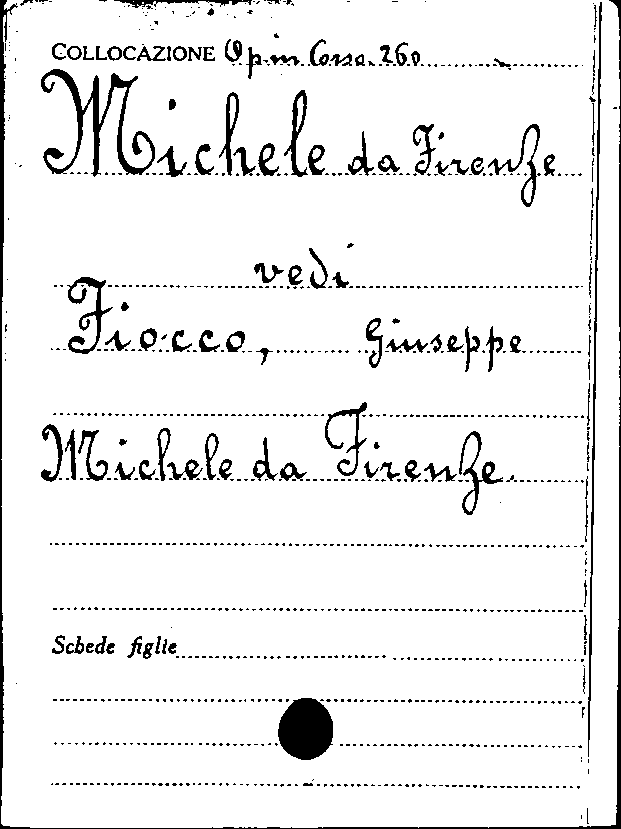 COLLOCAZIONE Op. in Corso. 260
Michele da Firenze
vedi
Fiocco, Giuseppe
Michele da Firenze.
Schede figlie